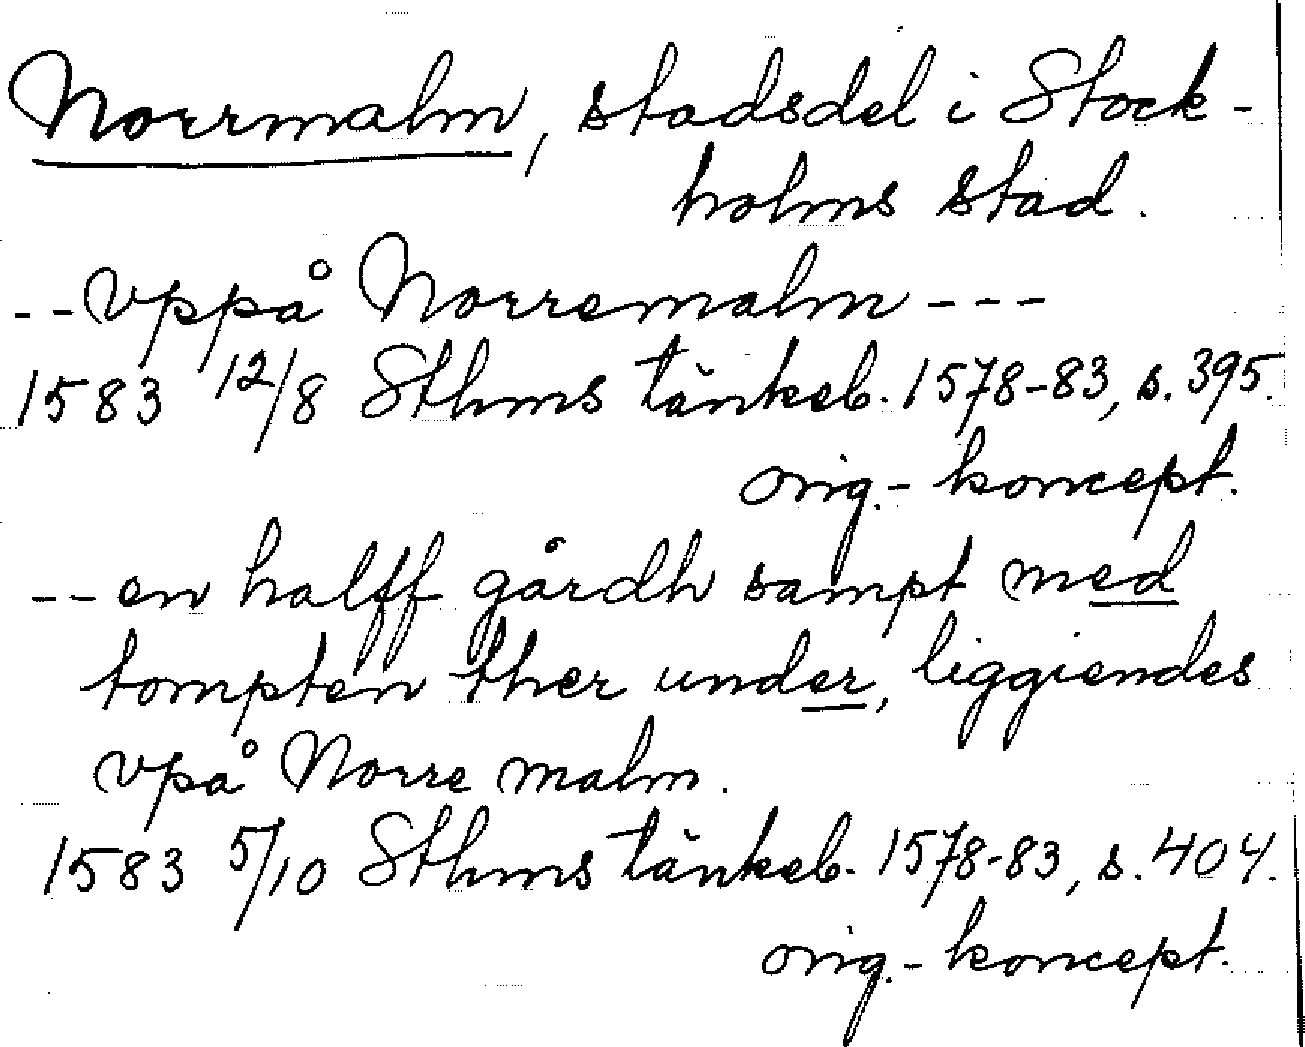 Norrmalm, stadsdel i Stock-
holms stad.
--vppå Norremalm---
1583 12/8 Sthms tänkeb. 1578-83, s. 395.
orig.-koncept.
--en halff gårdh sampt med
tompten ther under, liggiendes
vpå Norre malm.
1583 5/10 Sthms tänkeb. 1578-83, s. 404.
orig.-koncept.